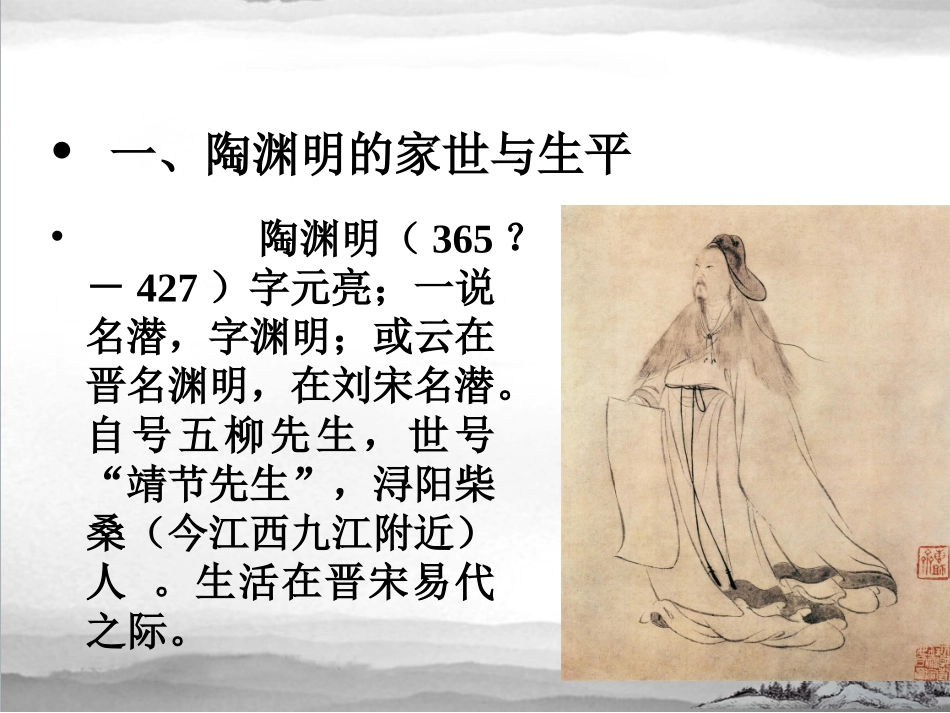 • 一、陶渊明的家世与生平
• 陶渊明（ 365 ？
－ 427 ）字元亮；一说
名潜，字渊明；或云在
晋名渊明，在刘宋名潜。
自号五柳先生，世号
“靖节先生”，浔阳柴
桑（今江西九江附近）
人 。生活在晋宋易代
之际。